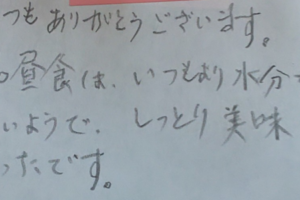 つもありがとうございます。
の昼食は、いつもより水分
いようで、しっとり美味
ったです。